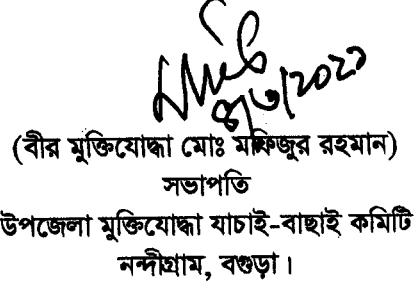 ৪/৩/২০২১
(বীর মুক্তিযোদ্ধা মোঃ মফিজুর রহমান)
সভাপতি
উপজেলা মুক্তিযোদ্ধা যাচাই-বাছাই কমিটি
নন্দীগ্রাম, বগুড়া।